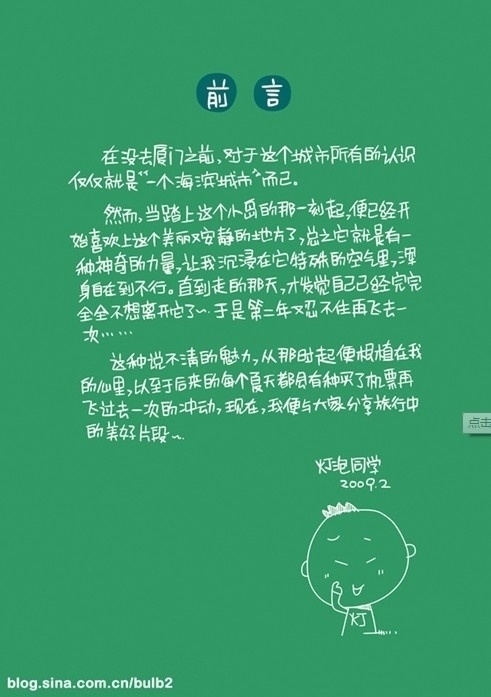 前言
在没去厦门之前,对于这个城市所有的认识
仅仅就是“一个海滨城市”而已。
然而,当踏上这个小岛的那一刻起,便已经开
始喜欢上这个美丽又安静的地方了,总之它就是有一
种神奇的力量,让我沉浸在它特殊的空气里,浑
身自在到不行。直到走的那天,才发觉自己已经完完
全全不想离开它了~于是第二年又忍不住再飞去一
次……
这种说不清的魅力,从那时起便根植在我
的心里,以至于后来的每个夏天都会有种买了机票再
飞过去一次的冲动,现在,我便与大家分享旅行中
的美好片段~
点击
灯泡同学
2009.2
灯
blog.sina.com.cn/bulb2